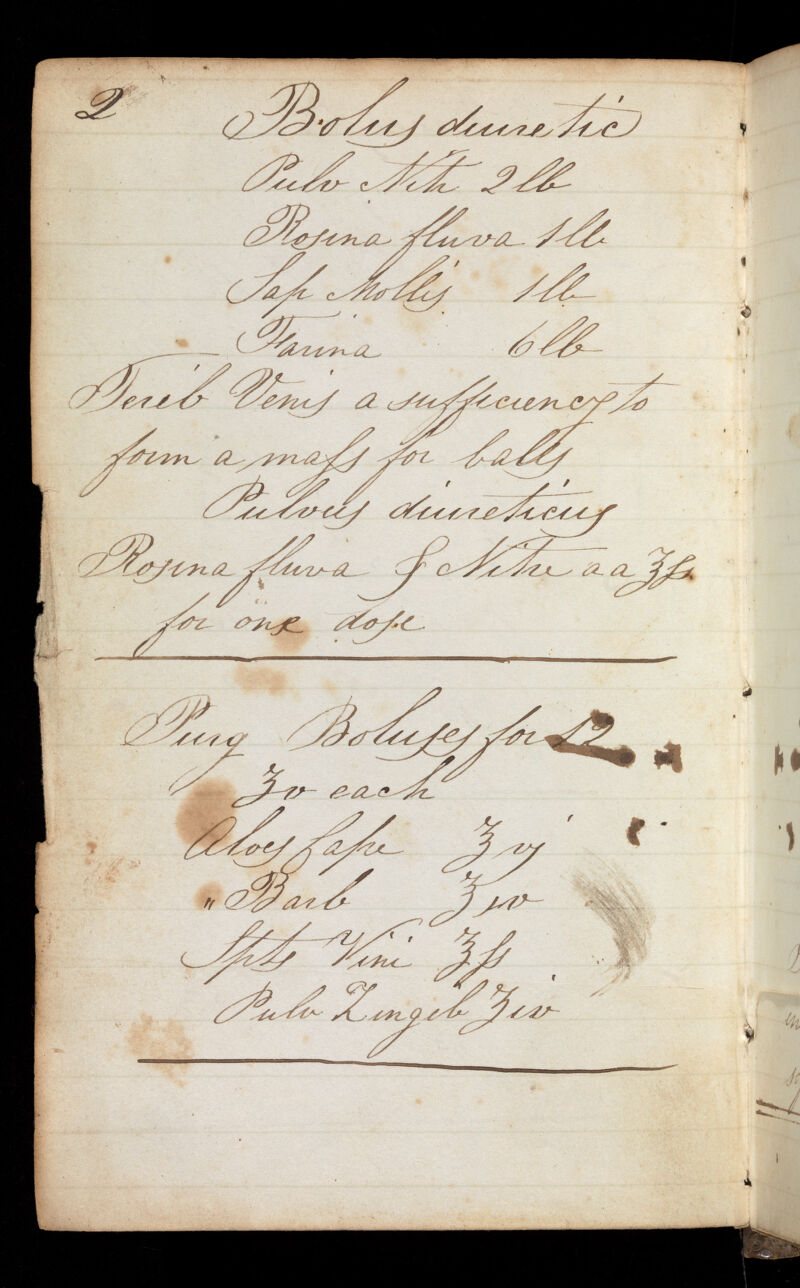 2
Bolus diuretic
Pulv Nitr 2lb
Rosina fluva 1lb
Sap Mollis 1lb
Farina 6lb
Tereb Venis a sufficiency to
form a maſs for balls
Pulvus diureticus
Rosina fluva & Nitre aa ʒſs
for one dose
Purg Boluses for 12
ʒv each
Aloes Cape ʒvj
" Barb ʒiv
Spts Vini ʒſs
Pulv Zingib ʒiv